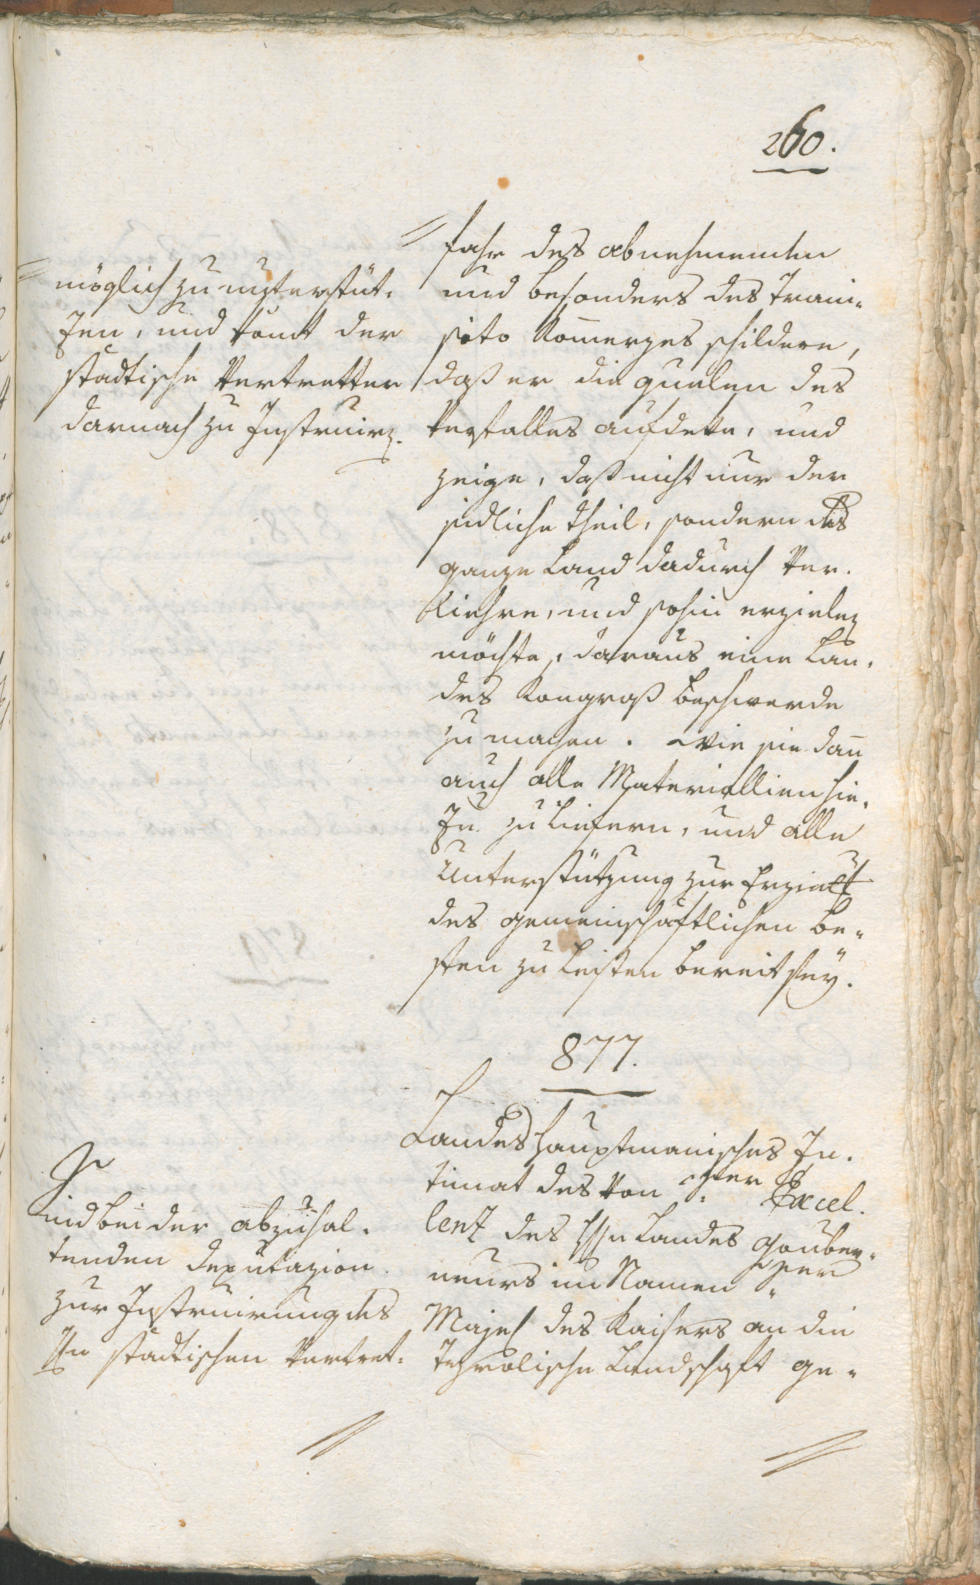 260.
möglich zu unterstüt-
zen, und somit der
stadtische Vertretter
darnach zu Instruirn.
fahr des abnehmenden
und besonders des Tran-
sito Komerzes schildere,
daß er die quelen des
Verfalles aufdeke, und
zeige, daß nicht nur der
südliche Theil, sondern das
ganze Land dadurch Ver-
liehre, und sohin erzielen
möchte, daraus eine Lan-
des Kongreß Beschwerde
zu machen. Wie sie dan
auch alle Materiallien hie-
zu zu liefern, und alle
Unterstützung zur Erzielung
des gemeinschaftlichen Be-
sten zu leisten bereit sey.
877.
Landeshauptmanisches In-
timat des von Sr Excel-
lenz des Hn Landes Gouver-
neurs im Namen Sr
Majes des Kaisers an die
Tyrolische Landschaft ge-
Wird bei der abzuhal-
tenden Deputazion
zur Instruirung des
Hn stadtischen Vertret-